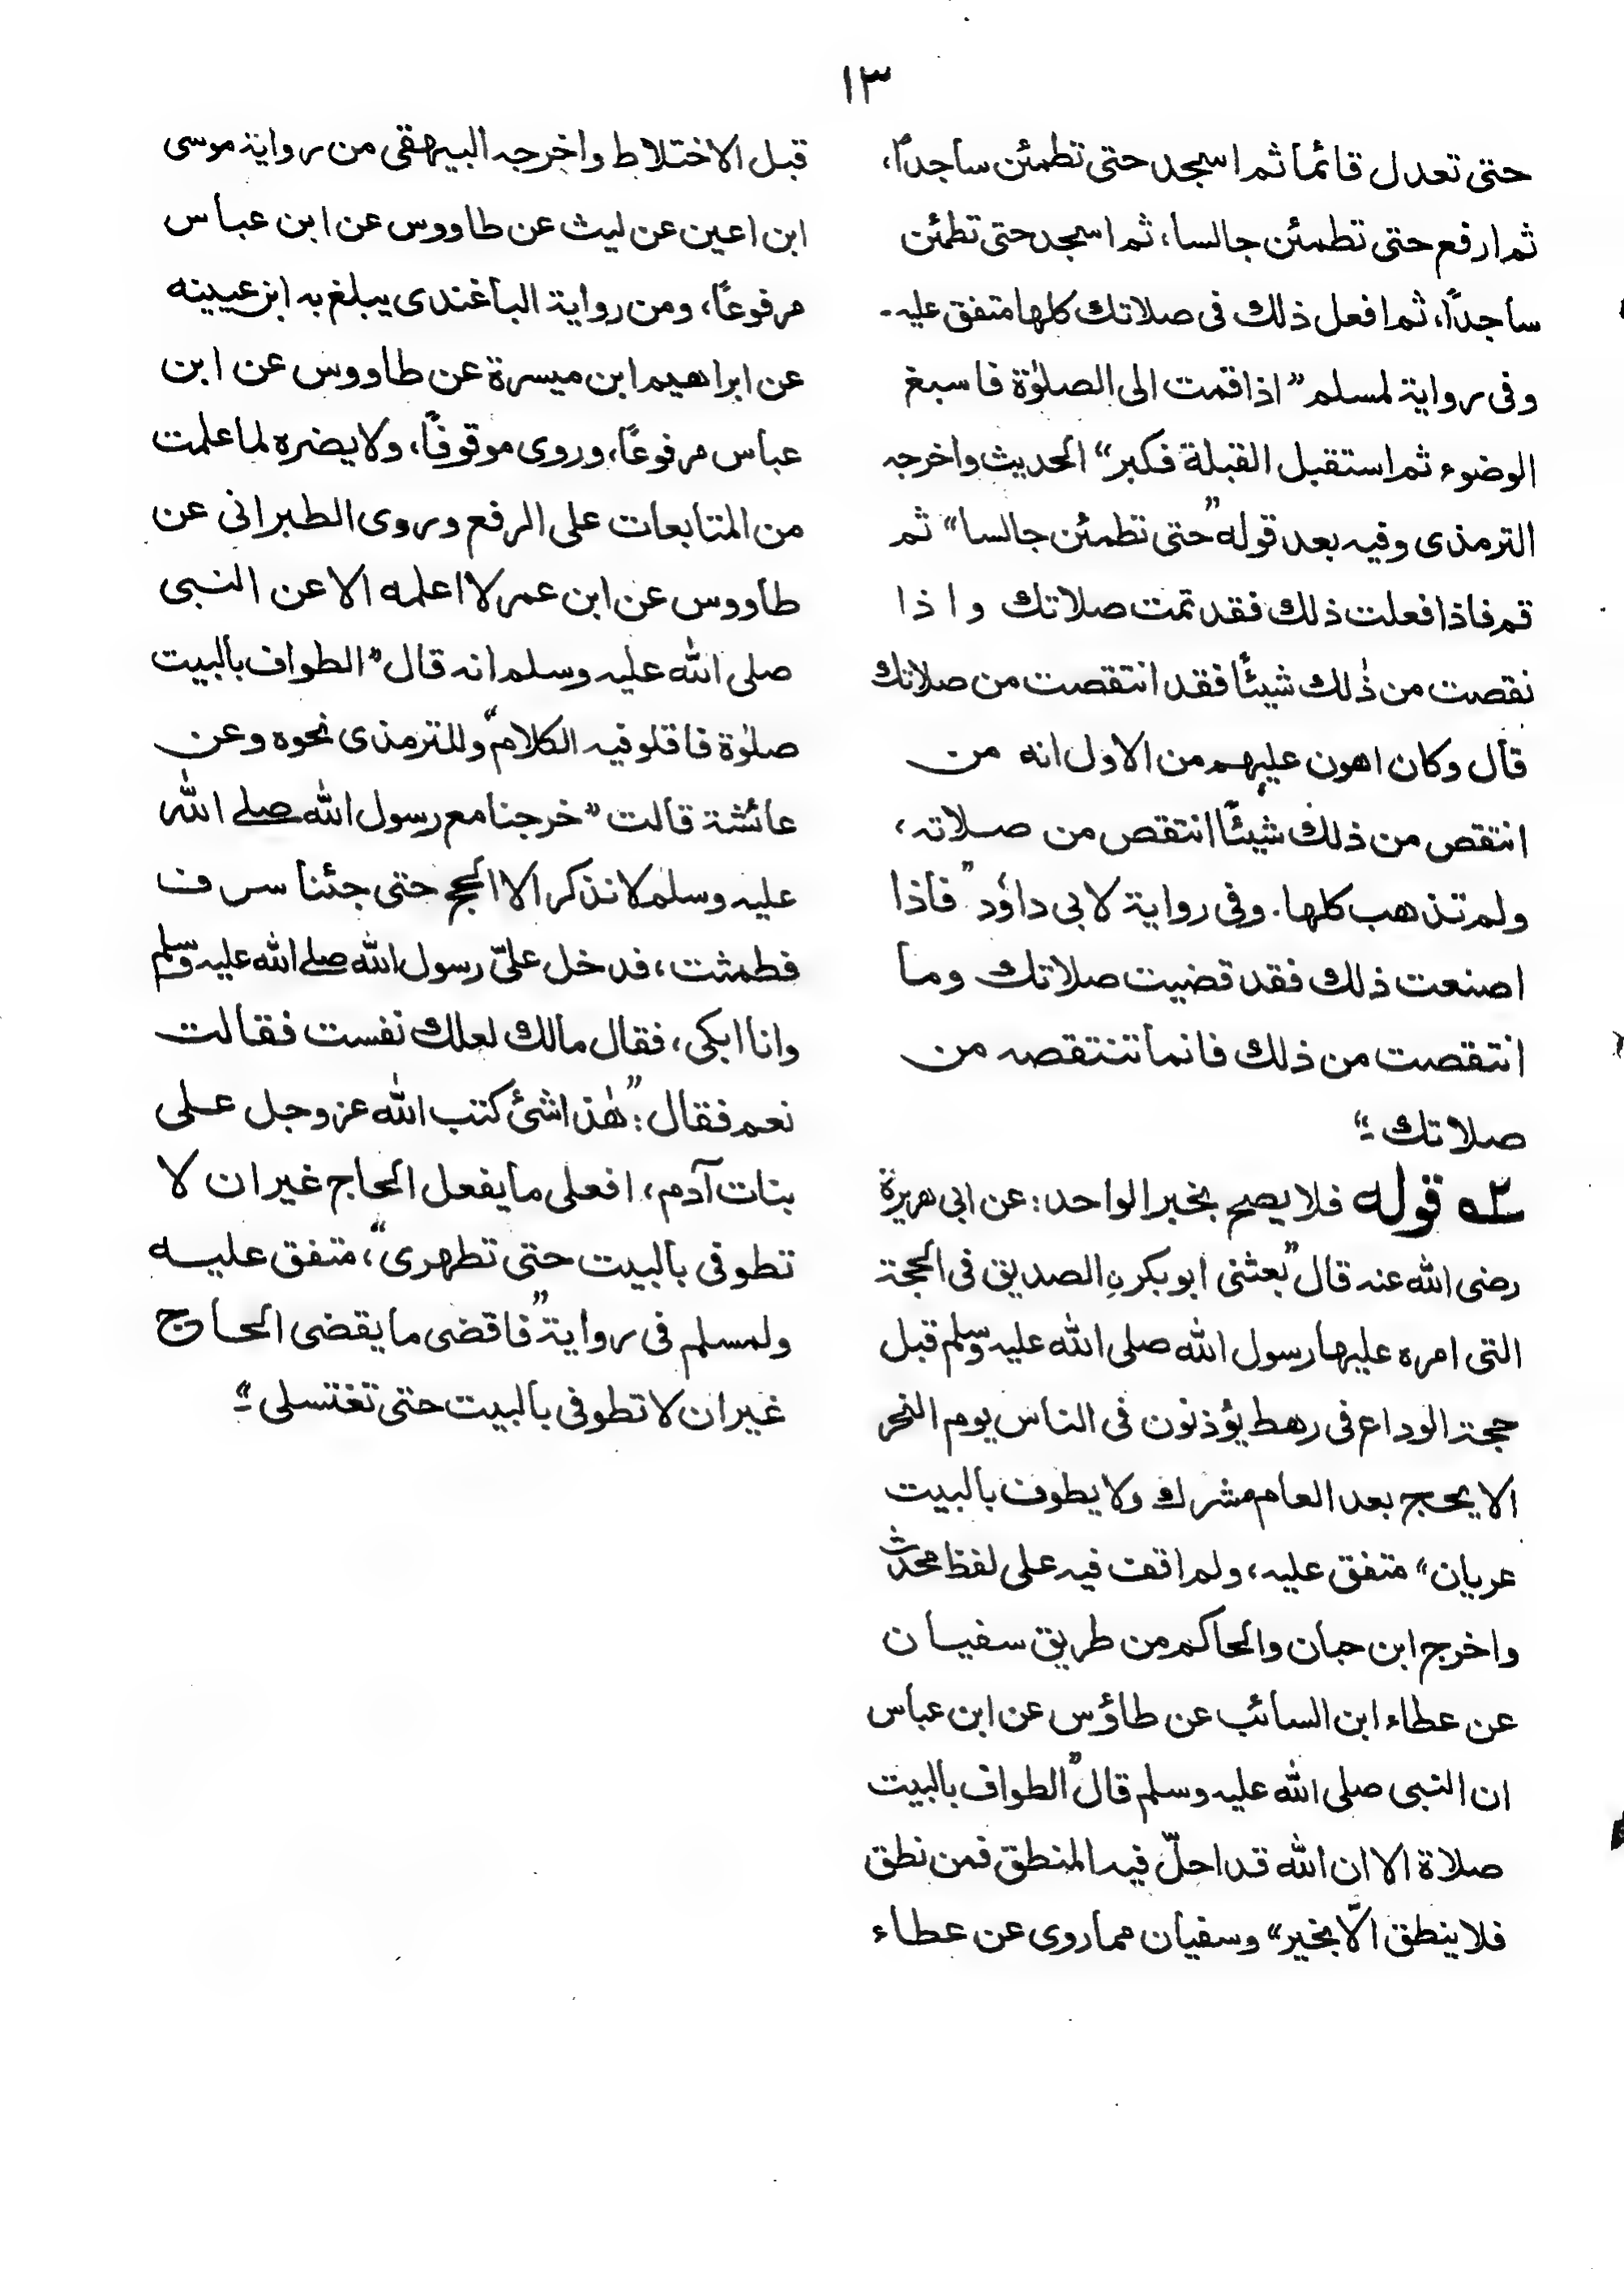 ١٣
حتى تعدل قائما ثم اسجد حتى تطمئن ساجداً،
ثم ارفع حتى تطمئن جالسا، ثم اسجد حتى تطمئن
ساجداً، ثم افعل ذلك فى صلاتك كلها متفق عليه۔
وفى رواية لمسلم ”اذا قمت الى الصلوٰة فاسبغ
الوضوء ثم استقبل القبلة فكبر“ الحديث واخرجه
الترمذى وفيه بعد قوله ”حتى تطمئن جالسا“ ثم
قم فاذا فعلت ذلك فقد تمت صلاتك واذا
نقصت من ذٰلك شيئًا فقد انتقصت من صلاتك
قال وكان اهون عليهم من الاول انه من
انتقص من ذلك شيئًا انتقص من صلاته،
ولم تذهب كلها. وفى رواية لابى داوٗد ”فاذا
اصنعت ذلك فقد قضيت صلاتك وما
انتقصت من ذلك فانما تنتقصه من
صلاتك“۔
٢ه قوله فلا يصح بخبر الواحد: عن ابى هريرة
رضى الله عنه قال ”بعثنى ابوبكرنِ الصديق فى الحجة
التى امره عليها رسول الله صلى الله عليه وسلم قبل
حجة الوداع فى رهط يؤذنون فى الناس يوم النحر
الا يحج بعد العام مشرك ولا يطوف بالبيت
عريان“ متفق عليه، ولم اقف فيه على لفظ محدث
واخرج ابن حبان والحاكم من طريق سفيان
عن عطاء ابن السائب عن طاؤس عن ابن عباس
ان النبى صلى الله عليه وسلم قال ”الطواف بالبيت
صلاة الا ان الله قد احلّ فيه المنطق فمن نطق
فلا ينطق الّا بخير“ وسفيان مما روى عن عطاء
قبل الاختلاط واخرجه البيهقى من رواية موسى
ابن اعين عن ليث عن طاووس عن ابن عباس
مرفوعًا، ومن رواية الباغندى يبلغ به ابن عيينه
عن ابراهيم ابن ميسرة عن طاووس عن ابن
عباس مرفوعًا، وروى موقوفًا، ولا يضره لما علمت
من المتابعات على الرفع وروى الطبرانى عن
طاووس عن ابن عمر لا اعلمه الا عن النبى
صلى الله عليه وسلم انه قال ”الطواف بالبيت
صلوٰة فاقلو فيه الكلام“ وللترمذى نحوه وعن
عائشة قالت ”خرجنا مع رسول الله صلے الله
عليه وسلم لا نذكر الا الحج حتى جئنا سرف
فطمثت، فدخل علىّ رسول الله صلے الله عليه وسلم
وانا ابكى، فقال مالك لعلك نفست فقالت
نعم فقال: ”هٰذا شئ كتب الله عز وجل على
بنات آدم، افعلى ما يفعل الحاج غير ان لا
تطوفى بالبيت حتى تطهرى“، متفق عليه
ولمسلم فى رواية ”فاقضى ما يقضى الحاج
غير ان لا تطوفى بالبيت حتى تغتسلى“۔